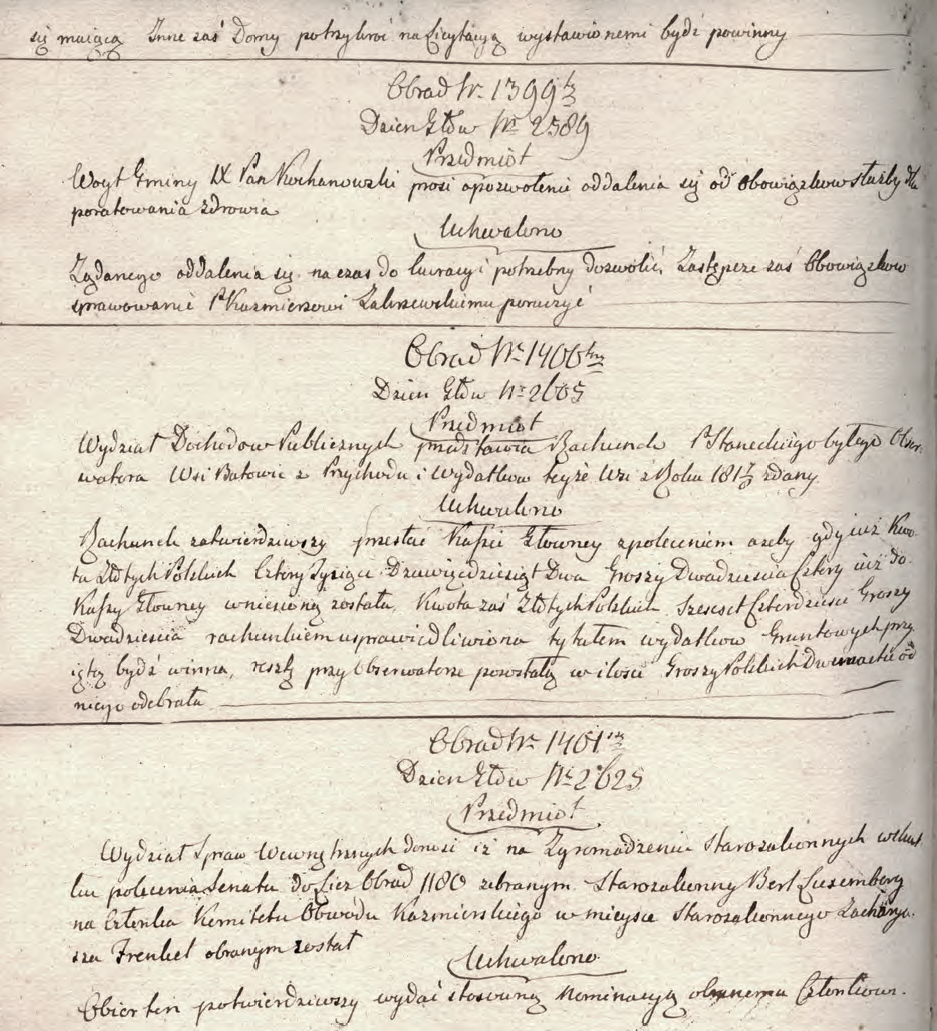 się maiącą Inne zaś Domy potrzykroć na Licytacyą wystawionemi bydź powinny
Obrad Nr. 1399
Dzien: Głów Nr 2589
Przedmiot
Woyt Gminy IX Pan Kochanowski prosi o pozwolenie oddalenia się od obowiązkow służby dla
poratowania zdrowia
Uchwalono
Żądanego oddalenia się na czas do kuracyi potrzebny dozwolić, Zastępcze zaś Obowiązkow
sprawowanie P. Kazmierzowi Zakrzewskiemu poruczyć
Obrad Nr 1400
Dzien Głów Nr 2605
Przedmiot
Wydział Dochodow Publicznych przedstawia Rachunek P. Staneckiego byłego Obser-
watora Wsi Batowic z Przychodu i Wydatkow teyże Wsi z Roku 181 zdany.
Uchwalono
Rachunek zatwierdziwszy przesłać Kassie Głowney z poleceniem ażeby gdy iuż Kwo-
ta Złotych Polskich Cztery Tysiące Dziewięćdziesiąt Dwa Groszy Dwadzieścia Cztery iuż do
Kassy Głowney wniesioną została, Kwota zaś Złotych Polskich Szescset Czterdziesci Groszy
Dwadzieścia rachunkiem usprawiedliwiona tytułem wydatkow Gruntowych przy-
iętą bydź winna, resztę przy Obserwatorze pozostałą w ilości Groszy Polskich Dwunastu od
niego odebrała
Obrad Nr 1401
Dzien Głów Nr 2625
Przedmiot
Wydział Spraw Wewnętrznych donosi iż na Zgromadzeniu Starozakonnych w skut-
ku polecenia Senatu do Licz Obrad 1180 zebranym Starozakonny Berl Luxemberg
na Członka Komitetu Obwodu Kazmierskiego w mieysce Starozakonnego Zacharya-
sza Frenkel obranym został
Uchwalono
Obior ten potwierdziwszy wydać stosowną Nominacyą Członkowi.